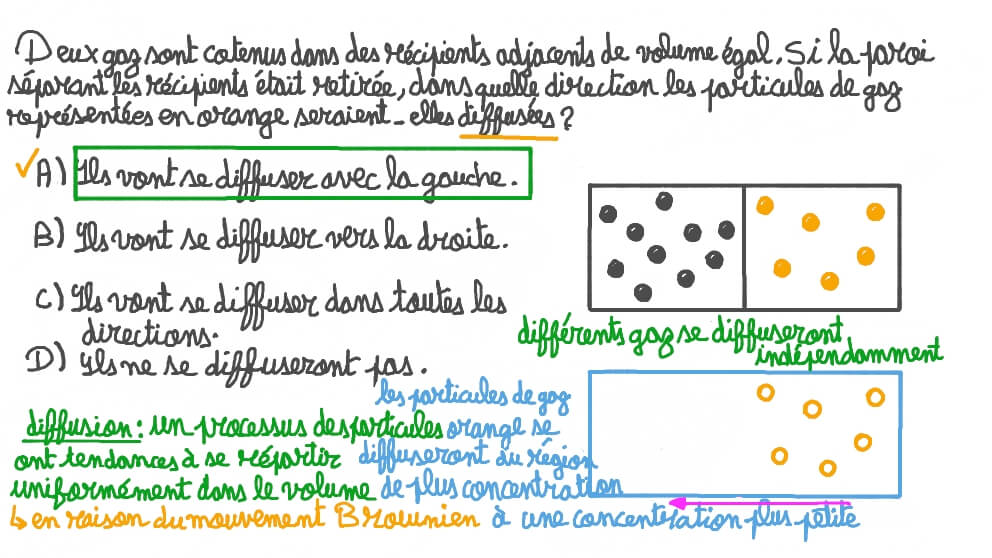 Deux gaz sont cotenus dans des récipients adjacents de volume égal. Si la paroi
séparant les récipients était retirée, dans quelle direction les particules de gaz
représentées en orange seraient-elles diffusées ?
A) Ils vont se diffuser avec la gauche.
B) Ils vont se diffuser vers la droite.
C) Ils vont se diffuser dans toutes les
directions.
D) Ils ne se diffuseront pas.
différents gaz se diffuseront
indépendamment
diffusion : un processus des particules
ont tendances à se répartir
uniformément dans le volume
↳ en raison du mouvement Brounien
les particules de gaz
orange se
diffuseront du région
de plus concentration
à une concentration plus petite